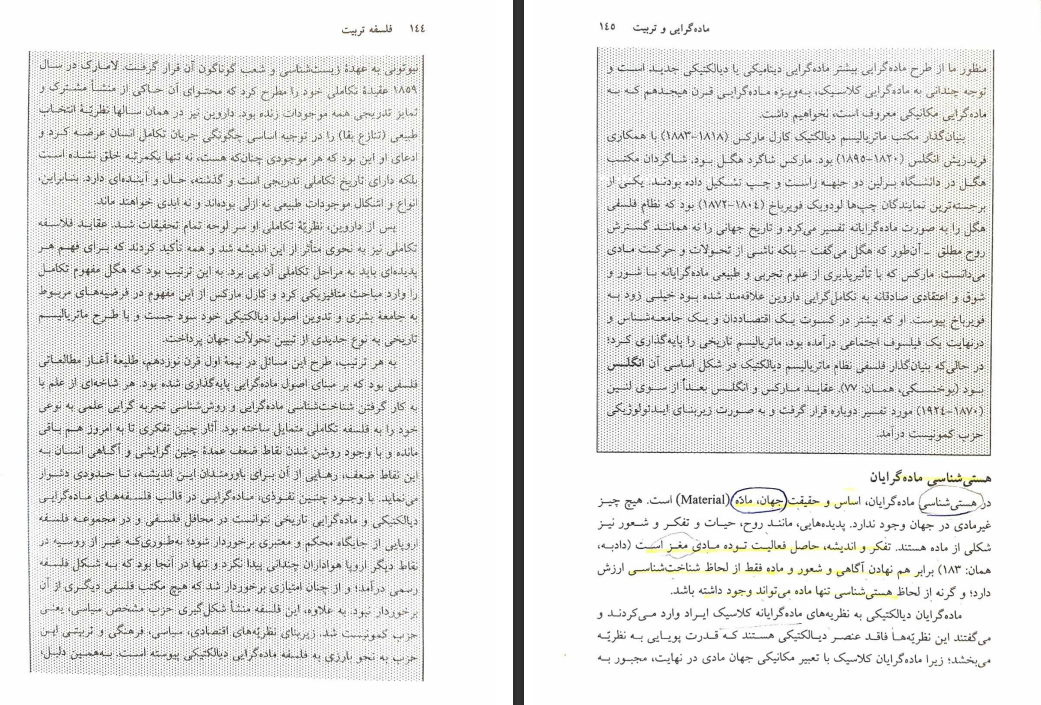 ۱۴۴ فلسفه تربیت
نیوتونی به عهدهٔ زیست‌شناسی و شعب گوناگون آن قرار گرفت. لامارک در سال
۱۸۵۹ عقیدهٔ تکاملی خود را مطرح کرد که محتوای آن حاکی از منشأ مشترک و
تمایز تدریجی همه موجودات زنده بود. داروین نیز در همان سالها نظریّهٔ انتخاب
طبیعی (تنازع بقا) را در توجیه اساسی چگونگی جریان تکامل انسان عرضه کرد و
ادعای او این بود که هر موجودی چنان‌که هست، نه تنها یکمرتبه خلق نشده است
بلکه دارای تاریخ تکاملی تدریجی است و گذشته، حال و آینده‌ای دارد. بنابراین،
انواع و اشکال موجودات طبیعی نه ازلی بوده‌اند و نه ابدی خواهند ماند.
پس از داروین، نظریّهٔ تکاملی او سر لوحه تمام تحقیقات شد. عقاید فلاسفه
تکاملی نیز به نحوی متأثر از این اندیشه شد و همه تأکید کردند که برای فهم هر
پدیده‌ای باید به مراحل تکاملی آن پی برد. به این ترتیب بود که هگل مفهوم تکامل
را وارد مباحث متافیزیکی کرد و کارل مارکس از این مفهوم در فرضیه‌های مربوط
به جامعهٔ بشری و تدوین اصول دیالکتیکی خود سود جست و با طرح ماتریالیسم
تاریخی به نوع جدیدی از تبیین تحولات جهان پرداخت.
به هر ترتیب، طرح این مسائل در نیمهٔ اول قرن نوزدهم، طلیعهٔ آغاز مطالعاتی
فلسفی بود که بر مبنای اصول ماده‌گرایی پایه‌گذاری شده بود. هر شاخه‌ای از علم با
به کار گرفتن شناخت‌شناسی ماده‌گرایی و روش‌شناسی تجربه گرایی علمی به نوعی
خود را به فلسفه تکاملی متمایل ساخته بود. آثار چنین تفکری تا به امروز هم باقی
مانده و با وجود روشن شدن نقاط ضعف عمدهٔ چنین گرایشی و آگاهی انسان به
این نقاط ضعف، رهایی از آن برای باورمندان این اندیشه، تا حدودی دشوار
می‌نماید. با وجود چنین نفوذی، ماده‌گرایی در قالب فلسفه‌های ماده‌گرایی
دیالکتیکی و ماده‌گرایی تاریخی نتوانست در محافل فلسفی و در مجموعه فلسفه
اروپایی از جایگاه محکم و معتبری برخوردار شود؛ به‌طوری‌که غیر از روسیه در
نقاط دیگر اروپا هواداران چندانی پیدا نکرد و تنها در آنجا بود که به شکل فلسفه
رسمی درآمد؛ و از چنان امتیازی برخوردار شد که هیچ مکتب فلسفی دیگری از آن
برخوردار نبود. به علاوه، این فلسفه منشأ شکل‌گیری حزب مشخص سیاسی، یعنی
حزب کمونیست شد. زیربنای نظریّه‌های اقتصادی، سیاسی، فرهنگی و تربیتی این
حزب به نحو بارزی به فلسفه ماده‌گرایی دیالکتیکی پیوسته است. به‌همین دلیل،
ماده‌گرایی و تربیت ۱۴۵
منظور ما از طرح ماده‌گرایی بیشتر ماده‌گرایی دینامیکی یا دیالکتیکی جدید است و
توجه چندانی به ماده‌گرایی کلاسیک، به‌ویژه ماده‌گرایی قرن هیجدهم که به
ماده‌گرایی مکانیکی معروف است، نخواهیم داشت.
بنیان‌گذار مکتب ماتریالیسم دیالکتیک کارل مارکس (۱۸۱۸-۱۸۸۳) با همکاری
فریدریش انگلس (۱۸۲۰-۱۸۹۵) بود. مارکس شاگرد هگل بود. شاگردان مکتب
هگل در دانشگاه برلین دو جبهه راست و چپ تشکیل داده بودند. یکی از
برجسته‌ترین نمایندگان چپ‌ها لودویک فویرباخ (۱۸۰۴-۱۸۷۲) بود که نظام فلسفی
هگل را به صورت ماده‌گرایانه تفسیر می‌کرد و تاریخ جهانی را نه همانند گسترش
روح مطلق - آن‌طور که هگل می‌گفت - بلکه ناشی از تحولات و حرکت مادی
می‌دانست. مارکس که با تأثیرپذیری از علوم تجربی و طبیعی ماده‌گرایانه با شور و
شوق و اعتقادی صادقانه به تکامل‌گرایی داروین علاقه‌مند شده بود خیلی زود به
فویرباخ پیوست. او که بیشتر در کسوت یک اقتصاددان و یک جامعه‌شناس و
درنهایت یک فیلسوف اجتماعی درآمده بود، ماتریالیسم تاریخی را پایه‌گذاری کرد؛
در حالی‌که بنیان‌گذار فلسفی نظام ماتریالیسم دیالکتیک در شکل اساسی آن انگلس
بود (بوخنسکی، همان: ۷۷). عقاید مارکس و انگلس بعداً از سوی لنین
(۱۸۷۰-۱۹۲۴) مورد تفسیر دوباره قرار گرفت و به صورت زیربنای ایدئولوژیکی
حزب کمونیست درآمد.
هستی‌شناسی ماده‌گرایان
در هستی‌شناسی ماده‌گرایان، اساس و حقیقت جهان، مادّه (Material) است. هیچ چیز
غیرمادی در جهان وجود ندارد. پدیده‌هایی، مانند روح، حیات و تفکر و شعور نیز
شکلی از ماده هستند. تفکر و اندیشه، حاصل فعالیت توده مادی مغز است (دادبه،
همان: ۱۸۳) برابر هم نهادن آگاهی و شعور و ماده فقط از لحاظ شناخت‌شناسی ارزش
دارد؛ و گرنه از لحاظ هستی‌شناسی تنها ماده می‌تواند وجود داشته باشد.
ماده‌گرایان دیالکتیکی به نظریه‌های ماده‌گرایانه کلاسیک ایراد وارد می‌کردند و
می‌گفتند این نظریّه‌ها فاقد عنصر دیالکتیکی هستند که قدرت پویایی به نظریّه
می‌بخشد؛ زیرا ماده‌گرایان کلاسیک با تعبیر مکانیکی جهان مادی در نهایت، مجبور به